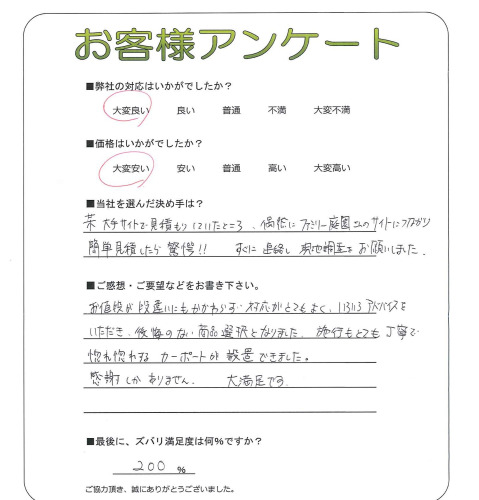 お客様アンケート
■弊社の対応はいかがでしたか？
大変良い 良い 普通 不満 大変不満
■価格はいかがでしたか？
大変安い 安い 普通 高い 大変高い
■当社を選んだ決め手は？
某 大手サイトで見積もりしていたところ、偶然にファミリー庭園さんのサイトにつながり
簡単見積したら 驚愕!! すぐに 連絡し 現地調査を お願いしました.
■ご感想・ご要望などをお書き下さい。
お値段が 段違いにもかかわらず 対応がとてもよく、いろいろアドバイスを
いただき、後悔のない 商品選択となりました. 施行もとても 丁寧で
惚れ惚れする カーポートが 設置できました。
感謝しかありません. 大満足です.
■最後に、ズバリ満足度は何%ですか？
200 %
ご協力頂き、誠にありがとうございました。